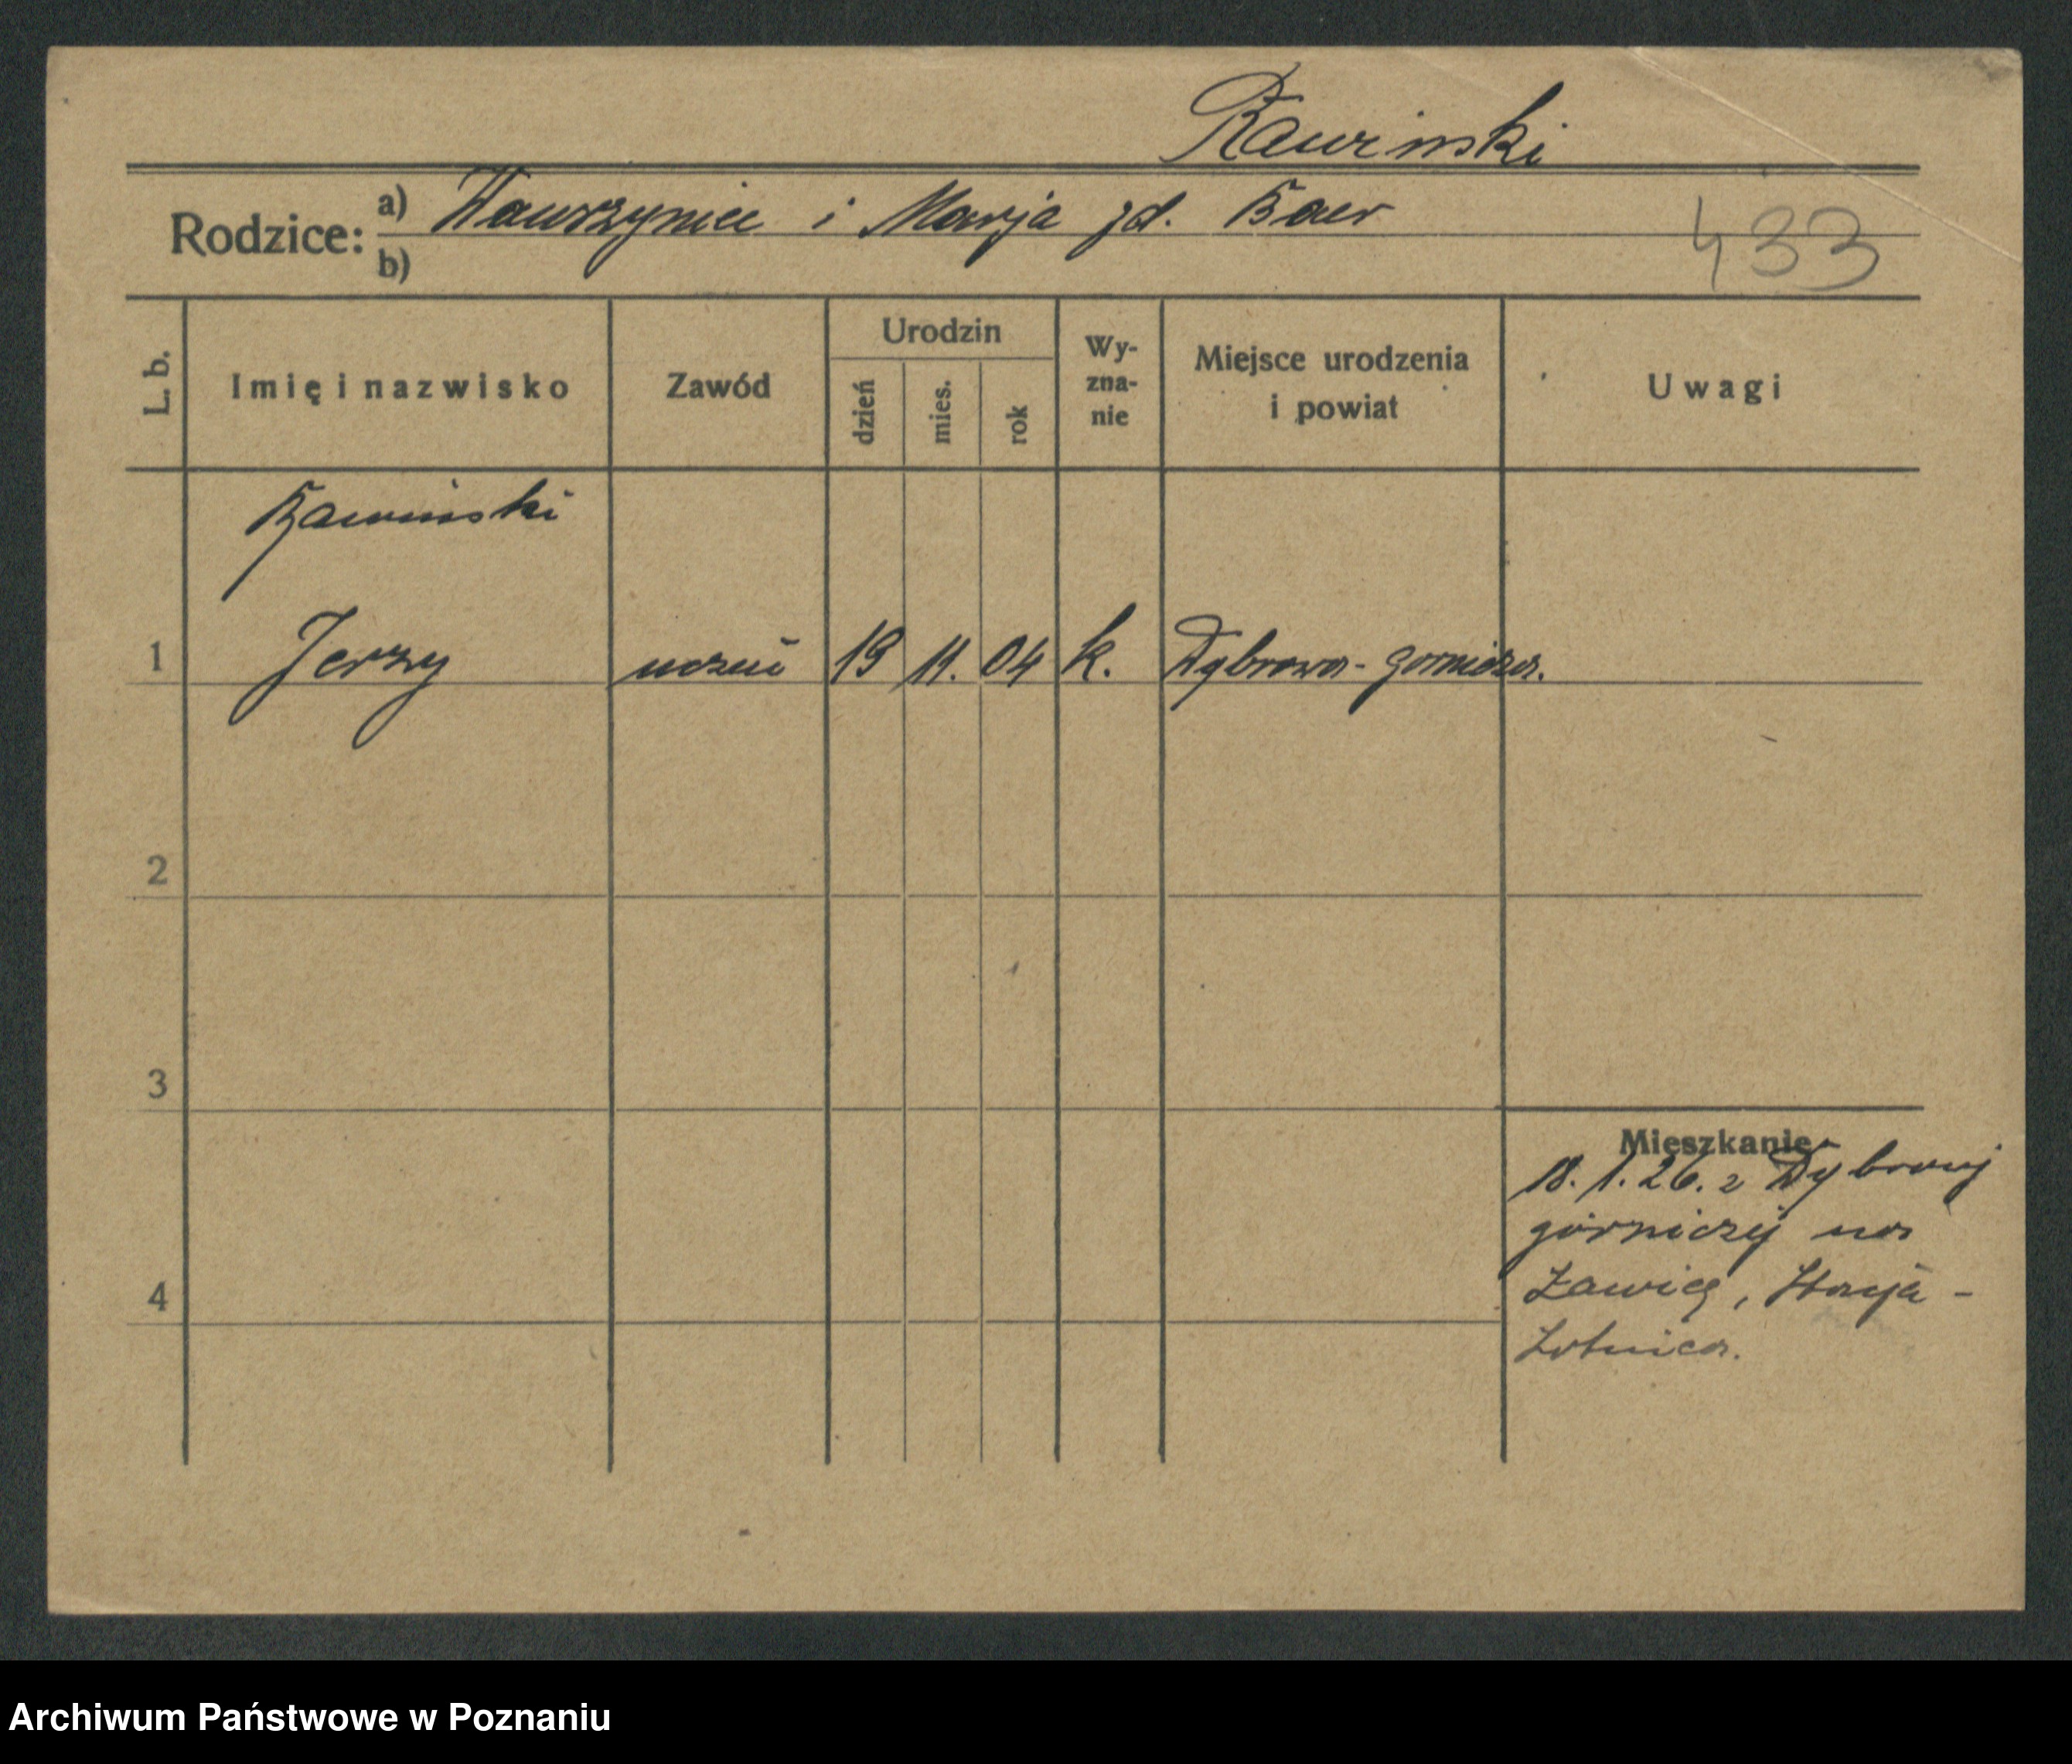 Rawinski
Rodzice: a) Wawrzyniec i Marja zd. Baer
b)
433
L. b. Imię i nazwisko Zawód Urodzin dzień mies. rok Wy-zna-nie Miejsce urodzenia i powiat Uwagi
Rawinski
1 Jerzy uczeń 19 11. 04 k. Dąbrowa-gornicza.
2
3
4
Mieszkanie
18.1.26. z Dąbrowy
górniczej na
Ławicę, Stacja-
Lotnicza.
Archiwum Państwowe w Poznaniu